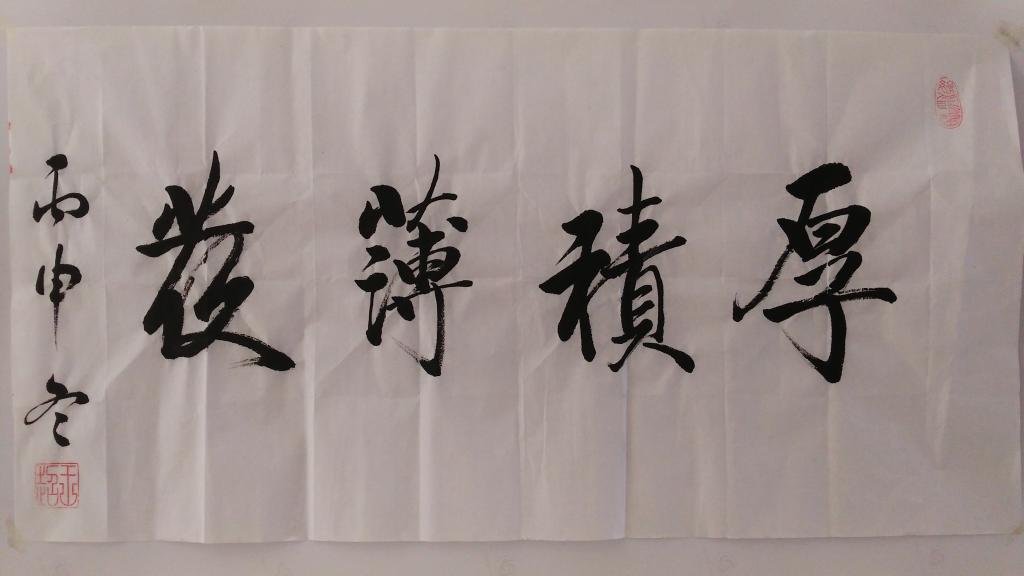 厚積薄發
丙申冬